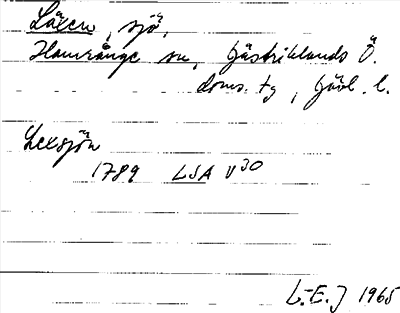 Läxen, sjö,
Hamrånge sn, Gästriklands Ö.
doms. tg, Gävl. l.
Lexsjön
1789 LSA V30
L-E.J 1965